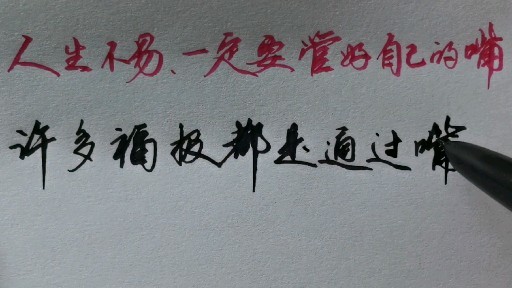 人生不易、一定要管好自己的嘴
许多福报都是通过嘴